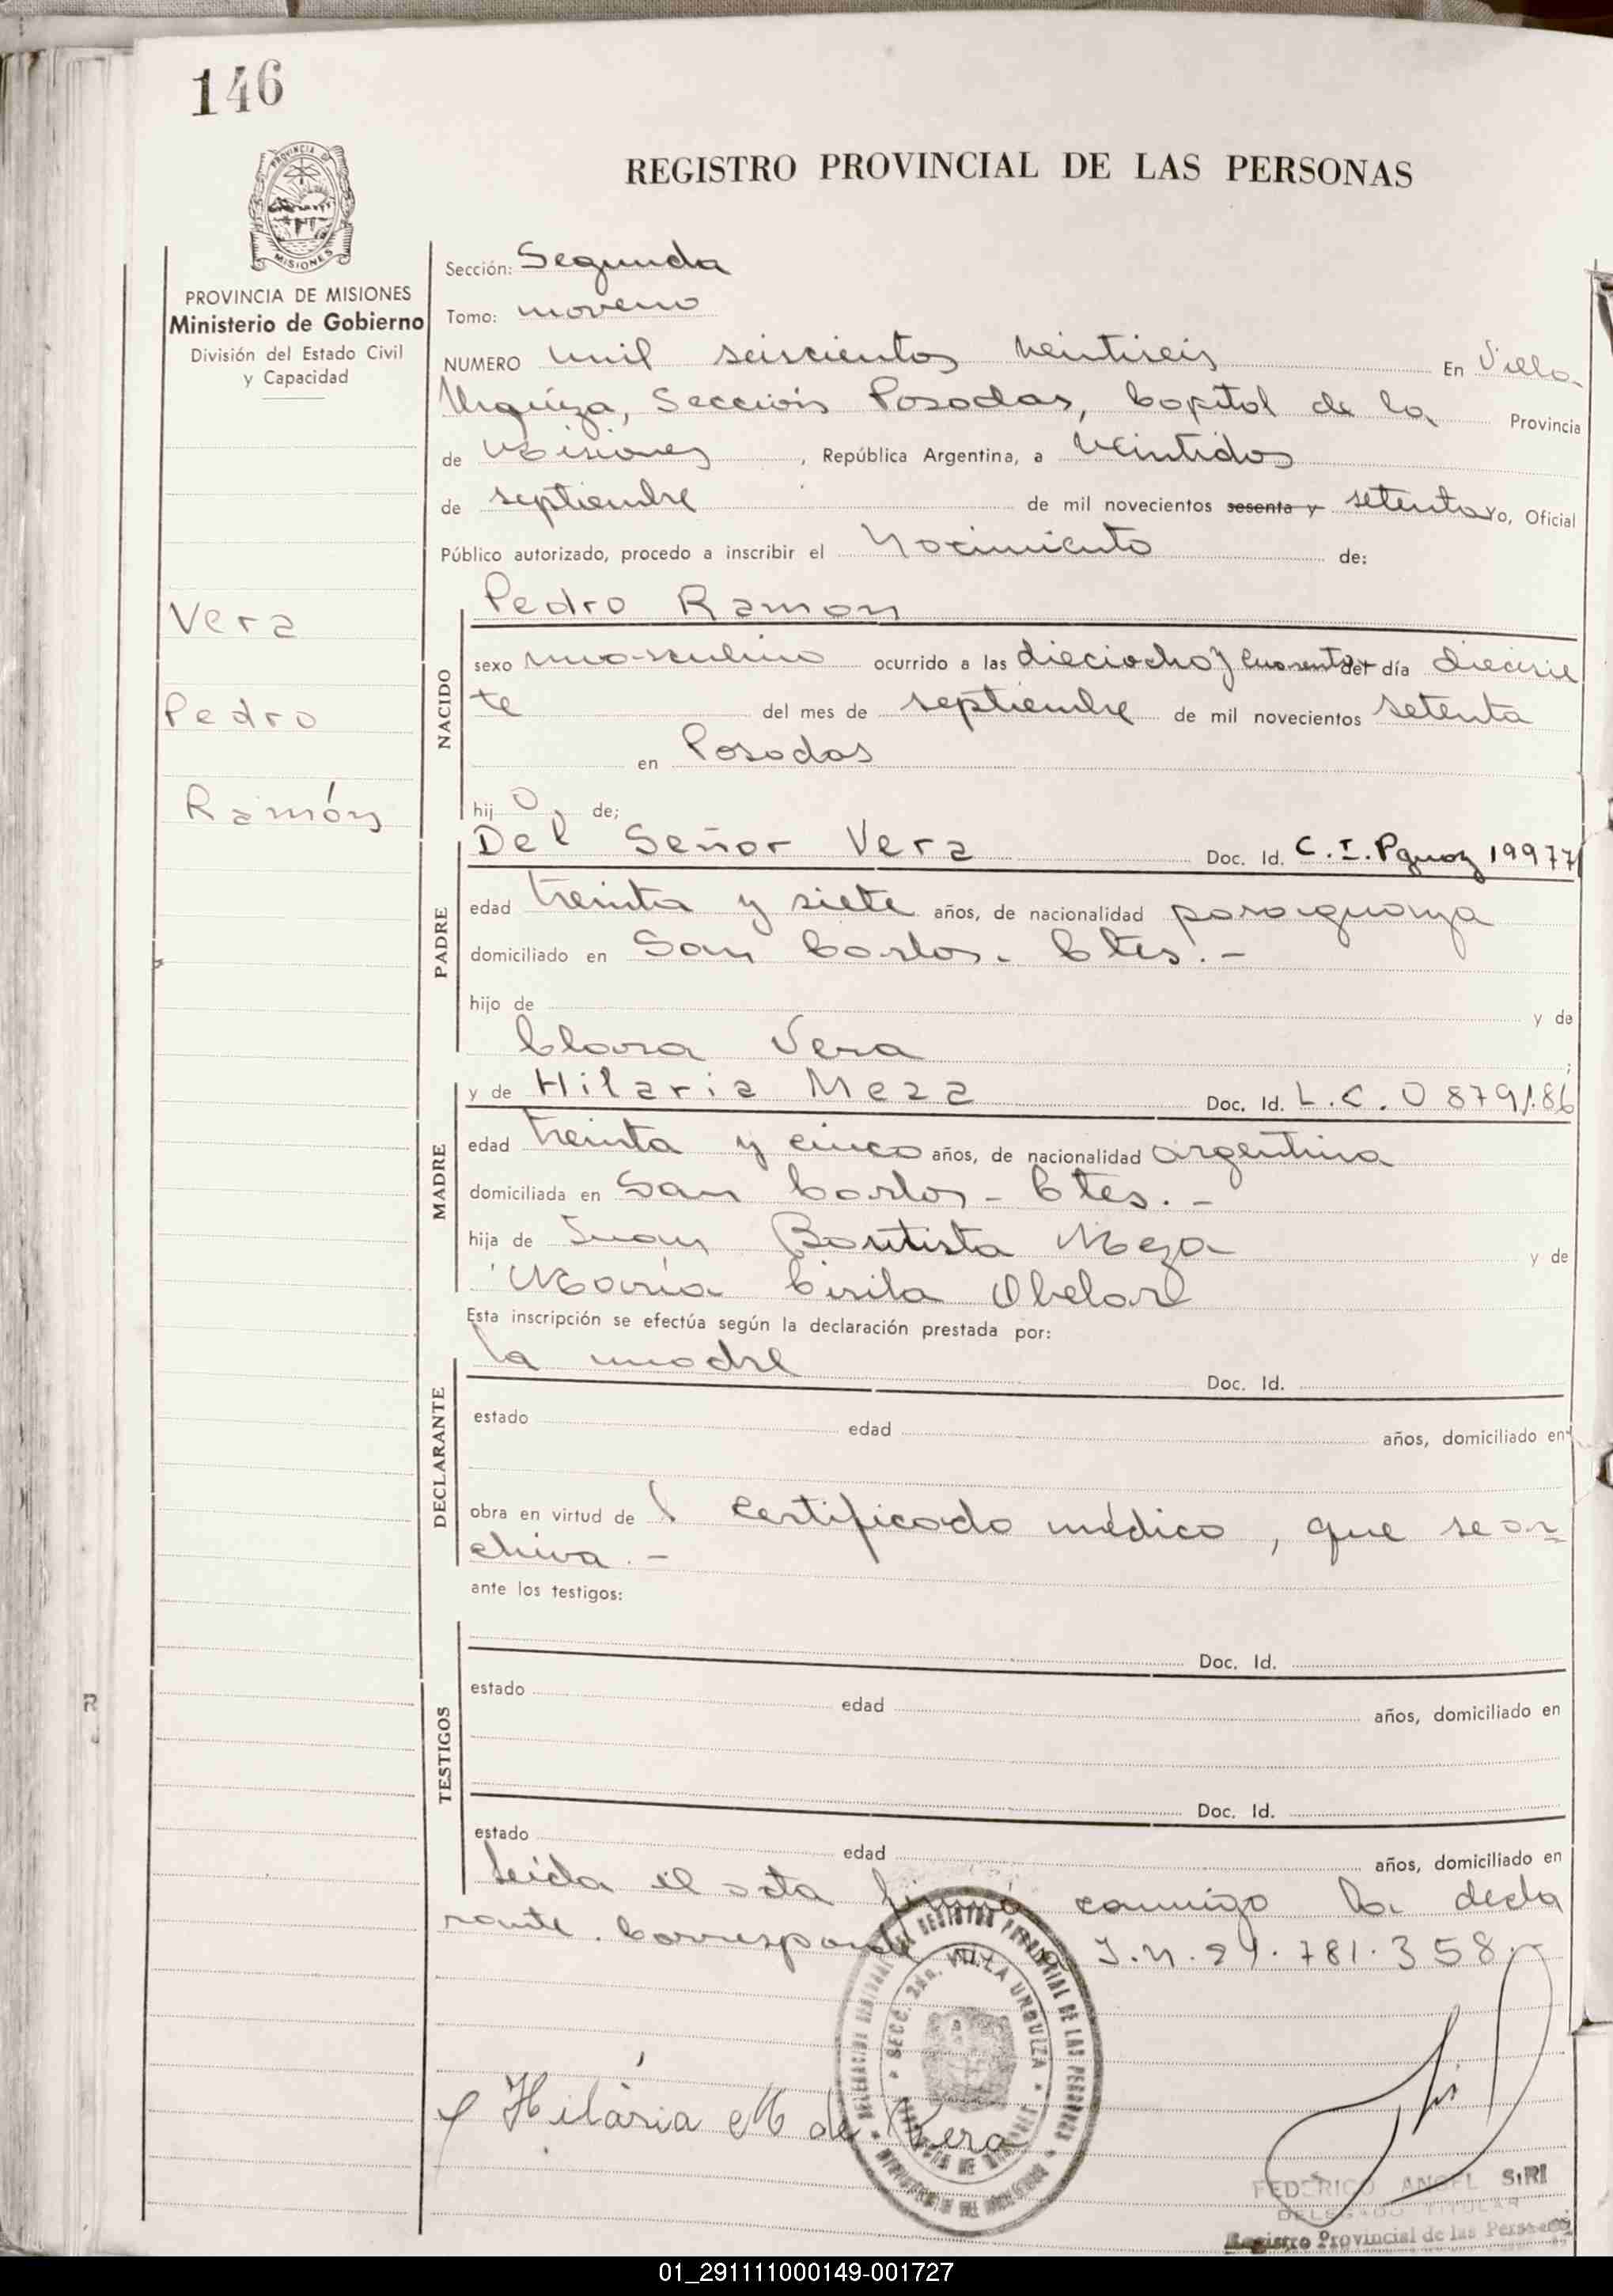 146
PROVINCIA DE
MISIONES
REGISTRO PROVINCIAL DE LAS PERSONAS
PROVINCIA DE MISIONES
Ministerio de Gobierno
División del Estado Civil
y Capacidad
Sección: Segunda
Tomo: noveno
NUMERO mil seiscientos veintiseis En Villa
Urquiza, Sección Posadas, Capital de la Provincia
de Misiones, República Argentina, a veintidos
de septiembre de mil novecientos sesenta y setenta yo, Oficial
Público autorizado, procedo a inscribir el Nacimiento de:
Vera
Pedro
Ramón
NACIDO
Pedro Ramon
sexo masculino ocurrido a las dieciocho y cuarenta del día diecisie
te del mes de septiembre de mil novecientos setenta
en Posadas
hijo de;
PADRE
Del Señor Vera Doc. Id. C.I.Pguay 199771
edad treinta y siete años, de nacionalidad paraguaya
domiciliado en San Carlos. Ctes.-
hijo de y de
Clara Vera ;
MADRE
y de Hilaria Meza Doc. Id. L.C.0879186
edad treinta y cinco años, de nacionalidad argentina
domiciliada en San Carlos - Ctes.-
hija de Juan Bautista Meza y de
María Cirila Obelar
Esta inscripción se efectúa según la declaración prestada por:
DECLARANTE
la madre Doc. Id.
estado edad años, domiciliado en
obra en virtud de l certificado médico, que se ar
chiva.-
ante los testigos:
TESTIGOS
Doc. Id.
estado edad años, domiciliado en
Doc. Id.
estado edad años, domiciliado en
Leída el acta firmó conmigo la decla
rante. Corresponde I.N. 21.781.358.-
SECC. 2da. VILLA URQUIZA
REGISTRO PROVINCIAL DE LAS PERSONAS
Hilária M de Vera
FEDERICO ANGEL SIRI
DELEGADO TITULAR
Registro Provincial de las Personas
R
01_291111000149-001727